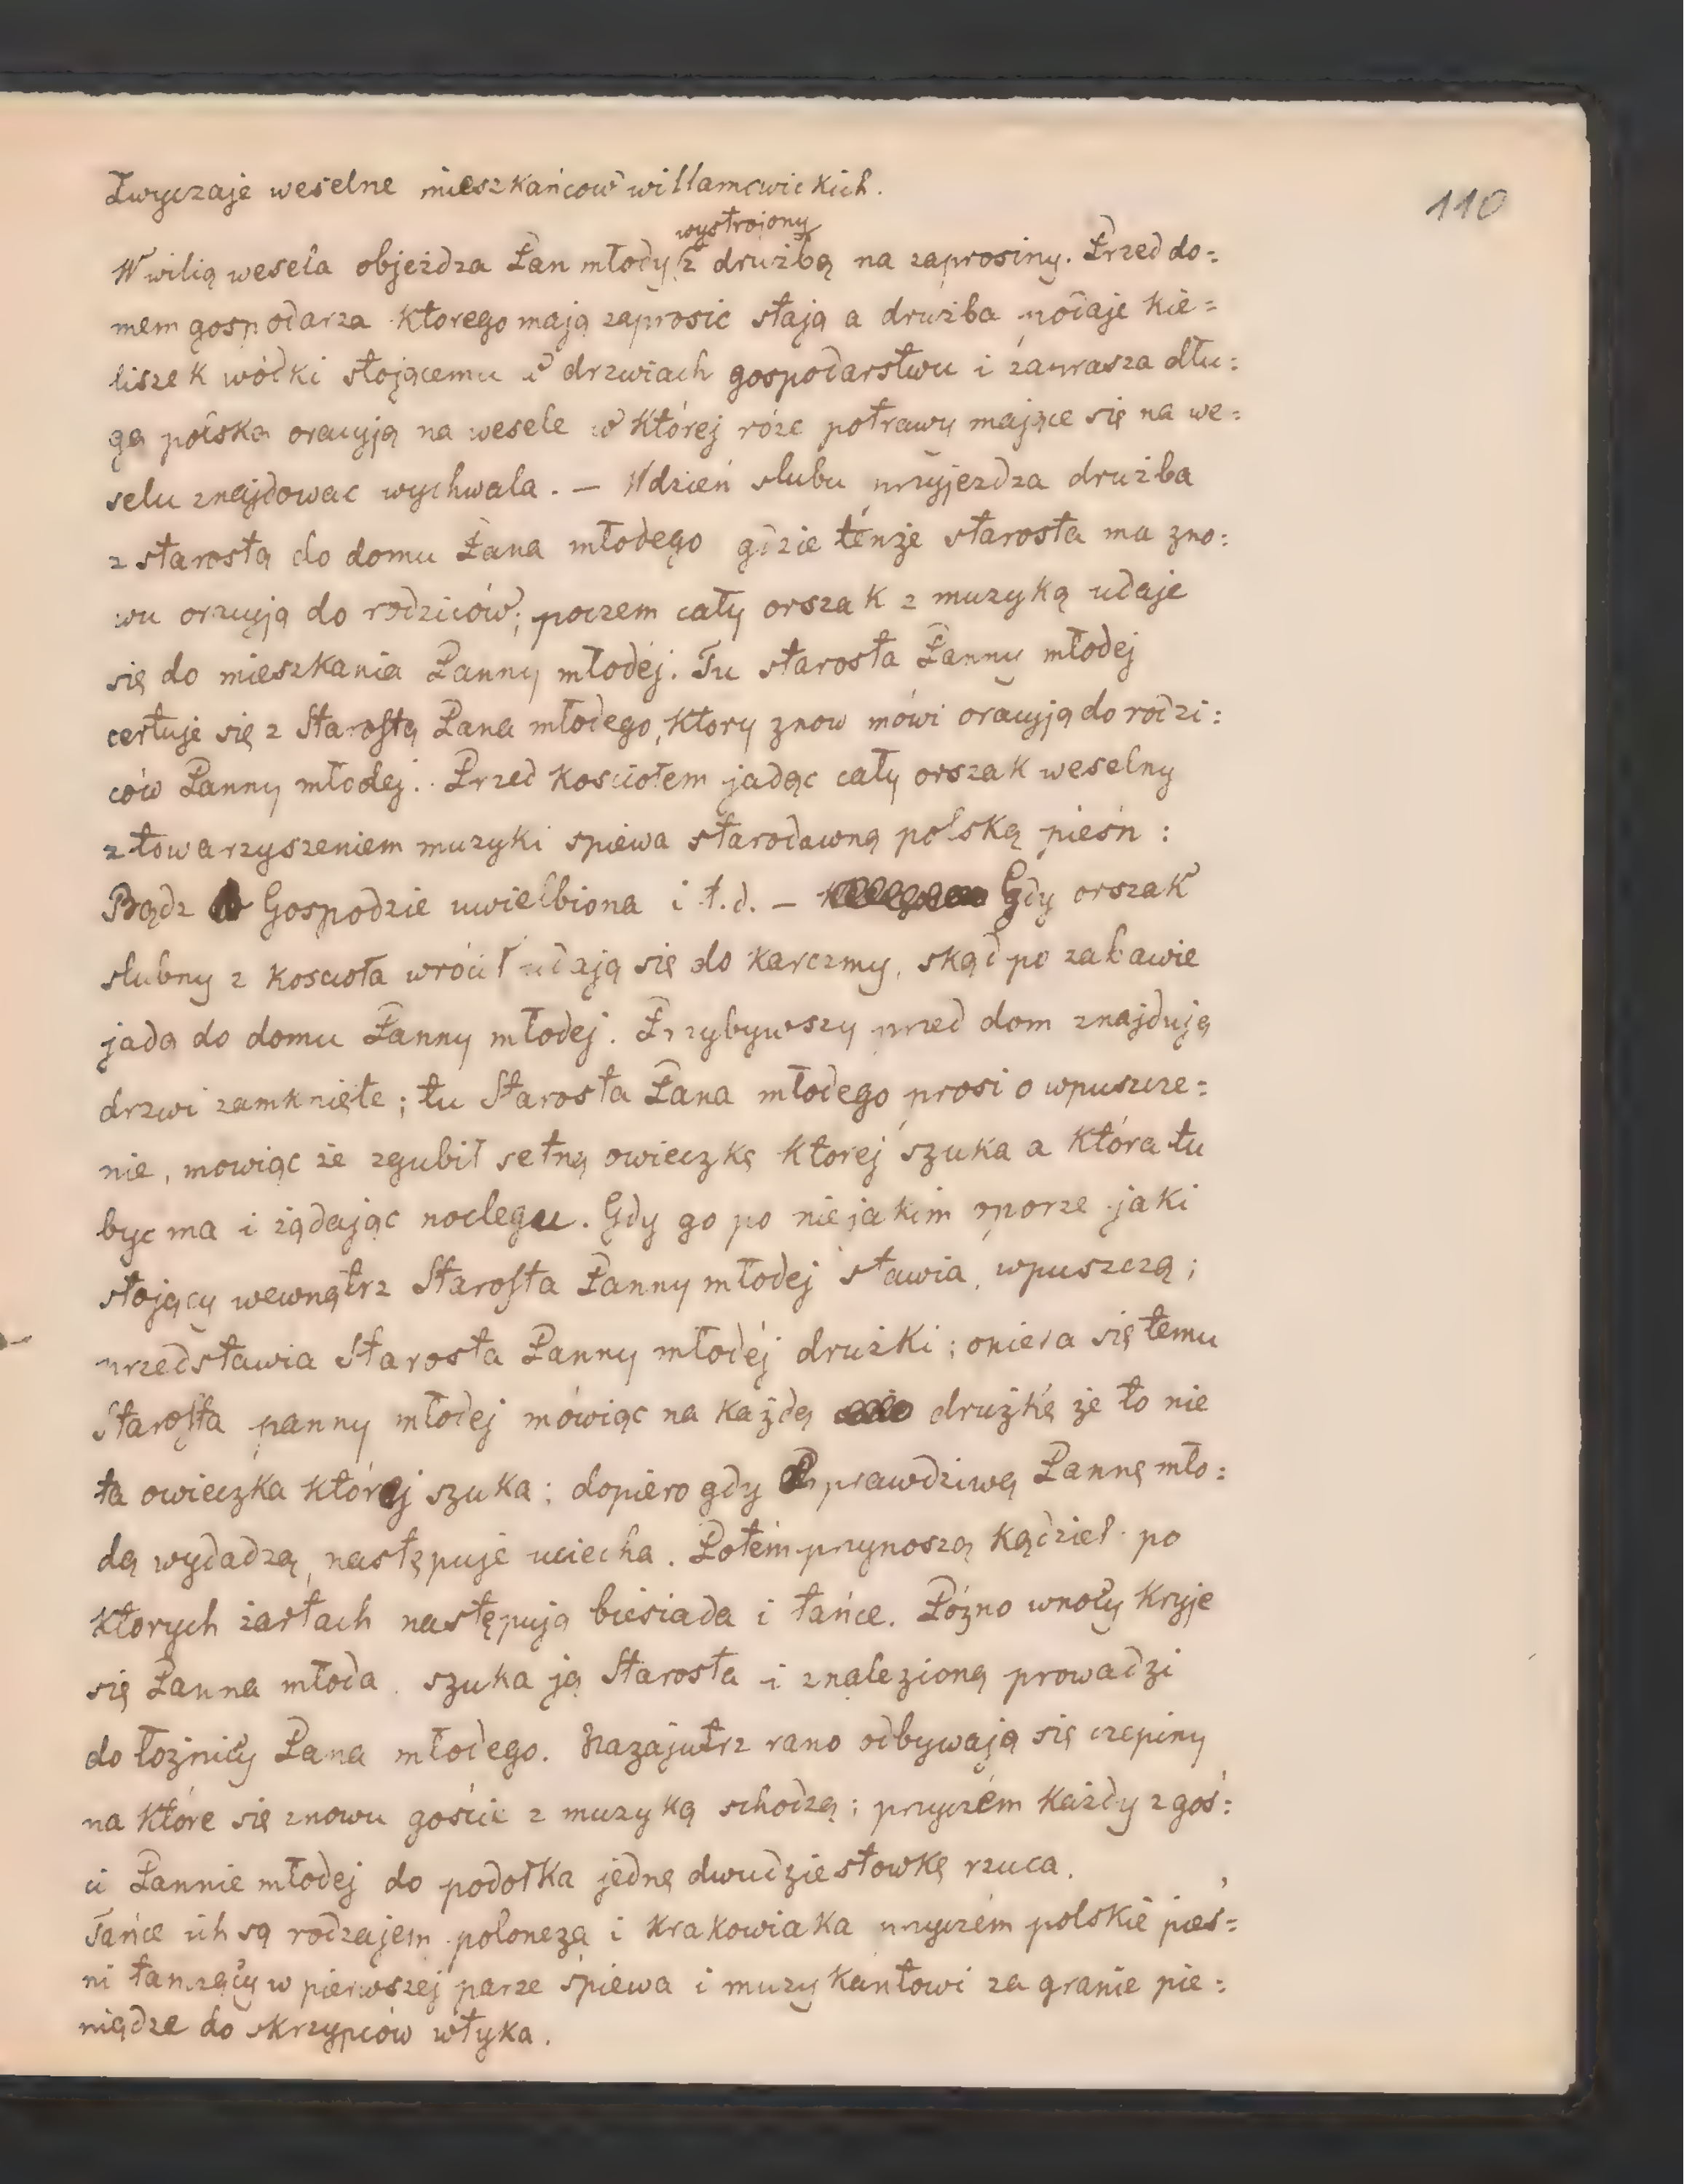 Zwyczaje weselne mieszkańców willamowickich.
110
wystrojony
W wilią wesela objeżdza Pan młody z drużbą na zaprosiny. Przed do=
mem gospodarza ktorego mają zaprosic stają a drużba podaje kie=
liszek wódki stojącemu w drzwiach gospodarstwu i zaprasza dłu=
gą polską oracyją na wesele w której róże potrawy mające się na we=
selu znajdowac wychwala. — W dzień slubu przyjezdza drużba
z starostą do domu Pana młodego gdzie tenże starosta ma zno=
wu oracyją do rodziców; poczem cały orszak z muzyką udaje
się do mieszkania Panny młodéj. Tu starosta Panny młodej
certuje się z Starostą Pana młodego, ktory znow mówi oracyją do rodzi=
ców Panny młodej. Przed kosciołem jadąc cały orszak weselny
z towarzyszeniem muzyki spiewa starodawną polską pieśn:
Bądz Gospodzie uwielbiona i t.d. — Gdy orszak
slubny z kosciota wrócił udają się do karczmy, skąd po zabawie
jadą do domu Panny młodej. Przybywszy przed dom znajdują
drzwi zamknięte; tu Starosta Pana młodego prosi o wpuszcze=
nie, mowiąc że zgubił setną owieczkę ktorej szuka a która tu
byc ma i żądając noclegu. Gdy go po niejakim sporze jaki
stojący wewnątrz Starosta Panny młodej stawia, wpuszczą;
przedstawia Starosta Panny młodéj drużki; opiera się temu
Starosta panny młodej mówiąc na każdą drużkę że to nie
ta owieczka której szuka; dopiero gdy prawdziwą Pannę mło=
dą wydadzą, następuje uciecha. Potém przynoszą kądziel po
ktorych żartach następują biesiada i tańce. Pózno wnocy kryje
się Panna młoda, szuka ją Starosta i znalezioną prowadzi
do łożnicy Pana młodego. Nazajutrz rano odbywają się czepiny
na które się znowu goście z muzyką schodzą; przyczém każdy z goś=
ci Pannie młodej do podołka jednę dwudziestowkę rzuca.
Tańce ich są rodzajem poloneza i krakowiaka przyczém polskie pieś=
ni tanczący w pierwszej parze śpiewa i muzykantowi za granie pie=
niądze do skrzypców wtyka.